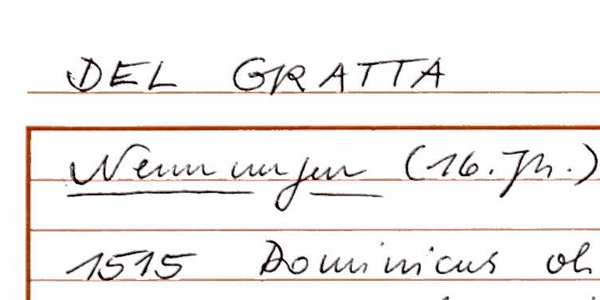 DEL GRATTA
Nennungen (16. Jh.)
1515 Dominicus